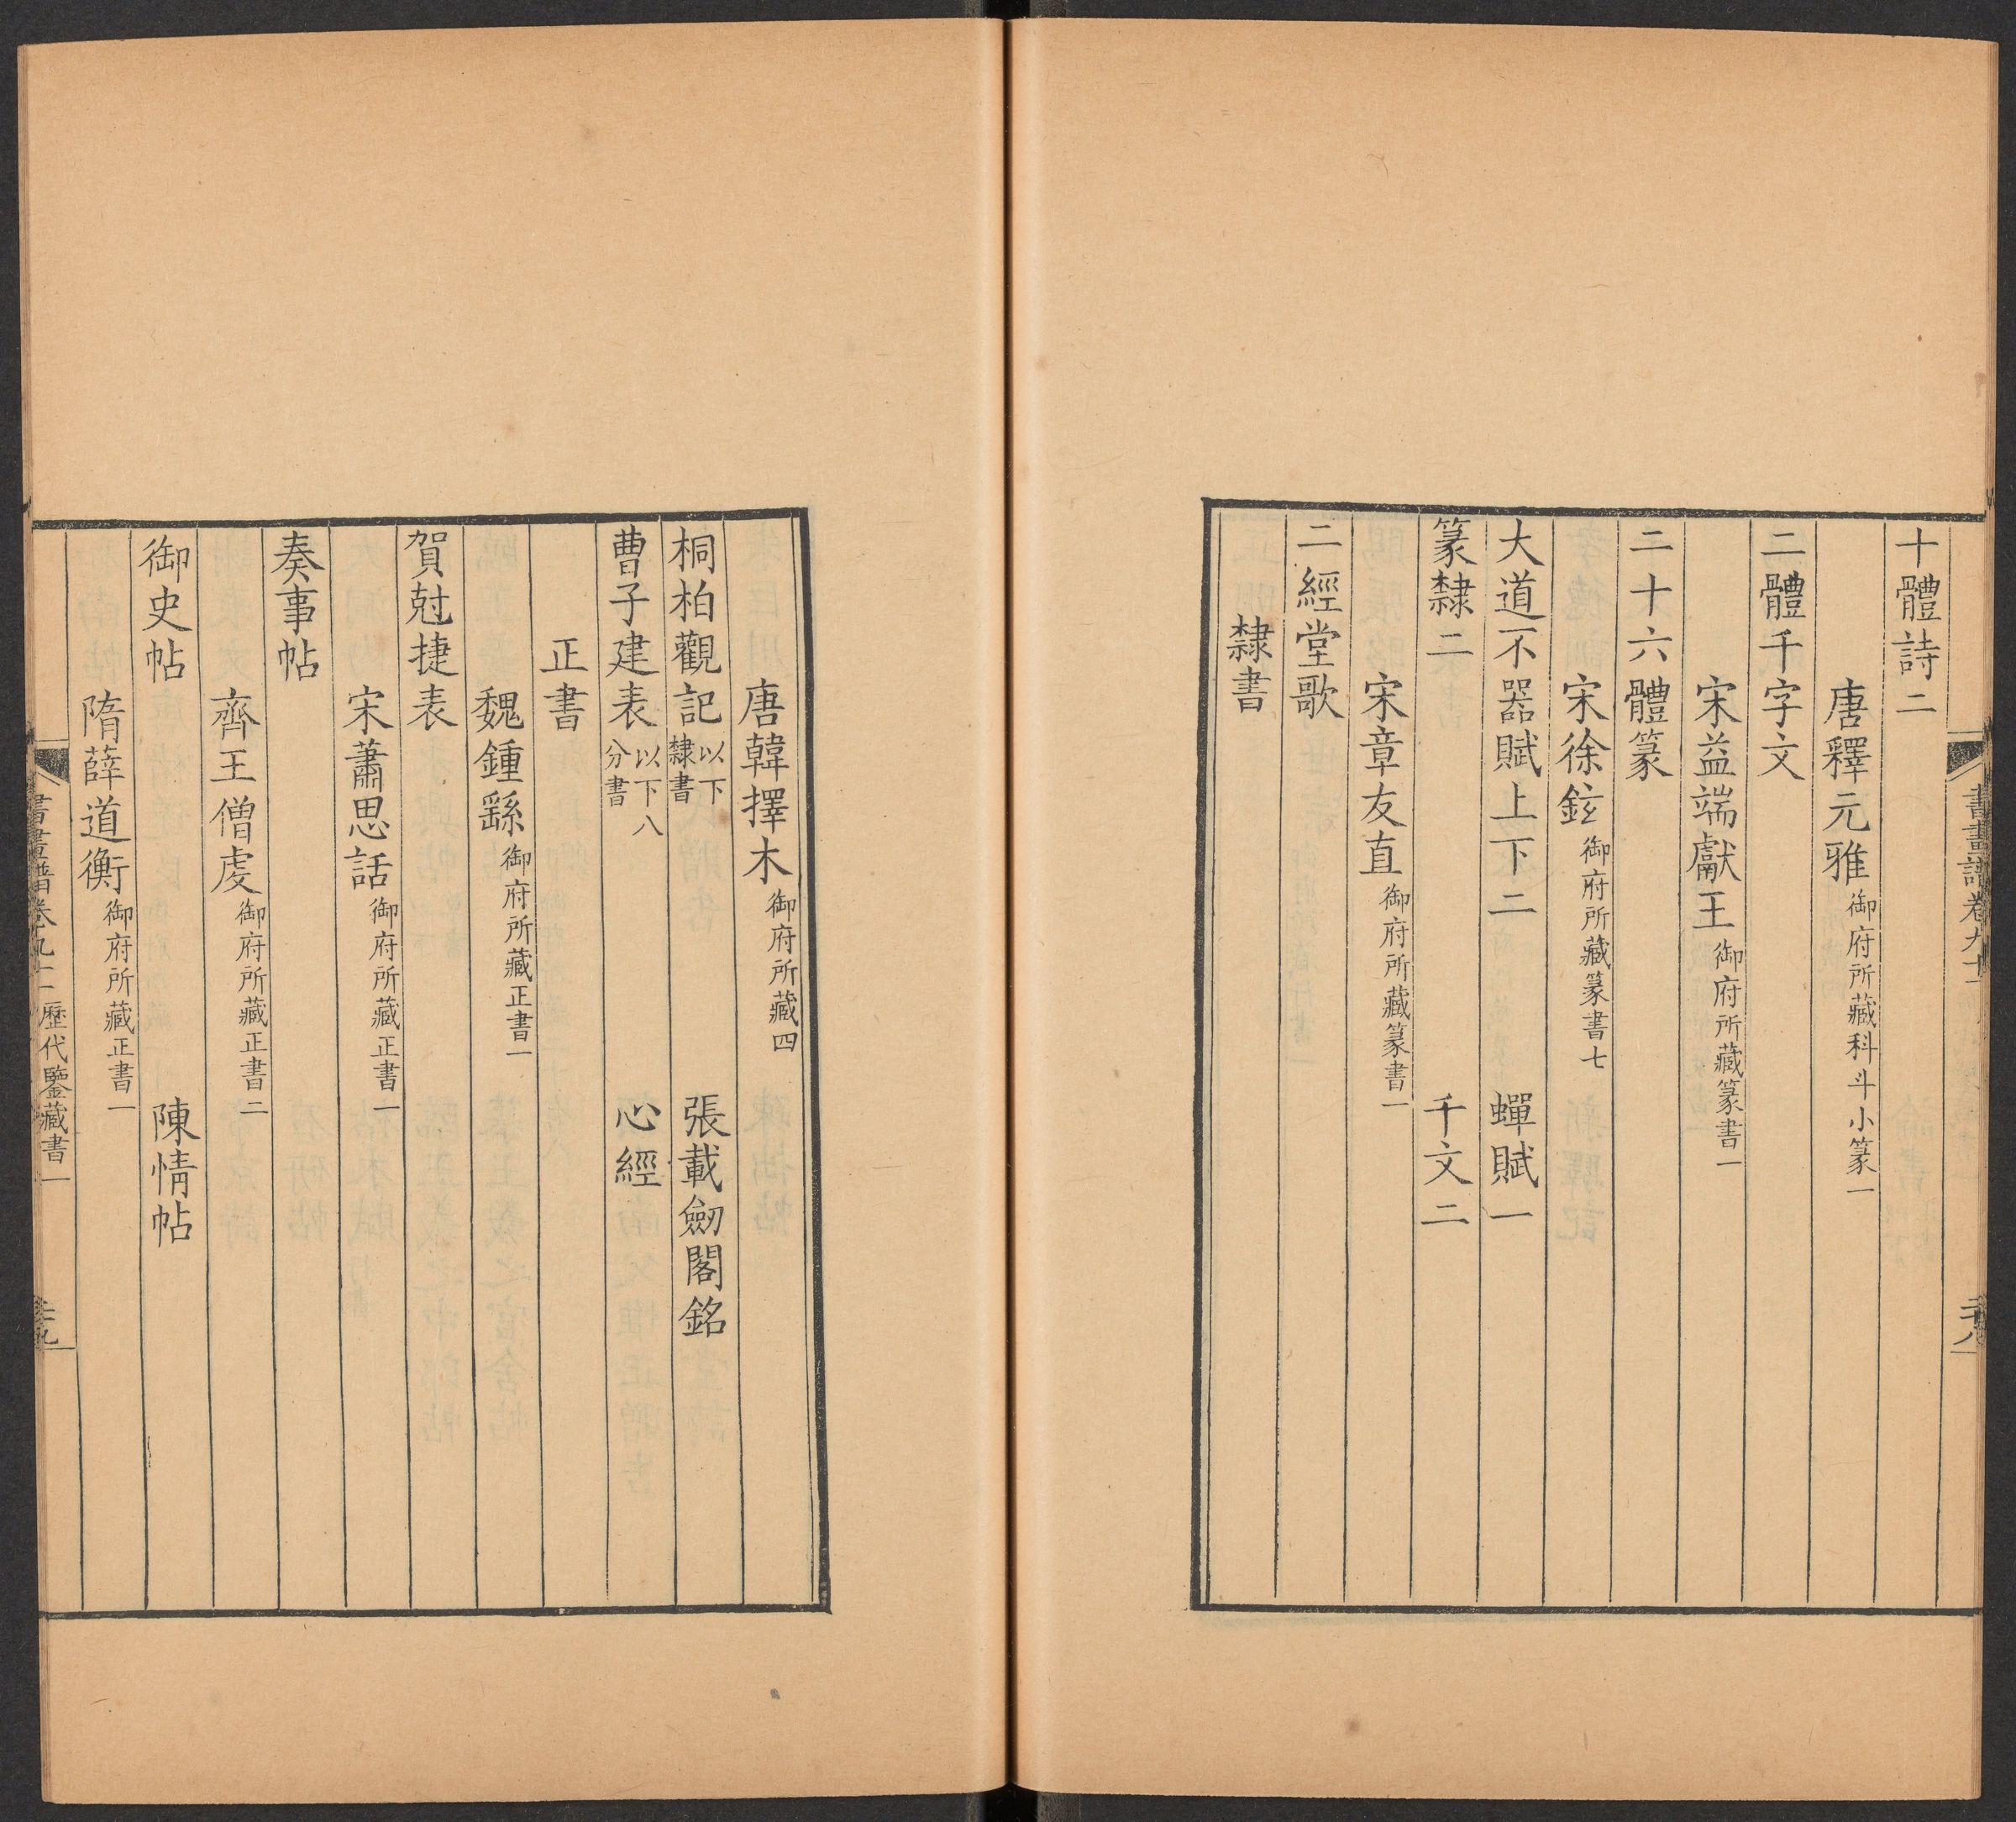 十體詩二
唐釋元雅御府所藏科斗小篆一
二體千字文
宋益端獻王御府所藏篆書一
二十六體篆
宋徐鉉御府所藏篆書七
大道不器賦上下二 蟬賦一
篆隸二 千文二
宋章友直御府所藏篆書一
二經堂歌
隸書
唐韓擇木御府所藏四
桐柏觀記以下隸書 張載劒閣銘
曹子建表以下八分書 心經
正書
魏鍾繇御府所藏正書一
賀尅捷表
宋蕭思話御府所藏正書一
奏事帖
齊王僧虔御府所藏正書二
御史帖 陳情帖
隋薛道衡御府所藏正書一
書畫譜卷九十一 歷代鑒藏書一